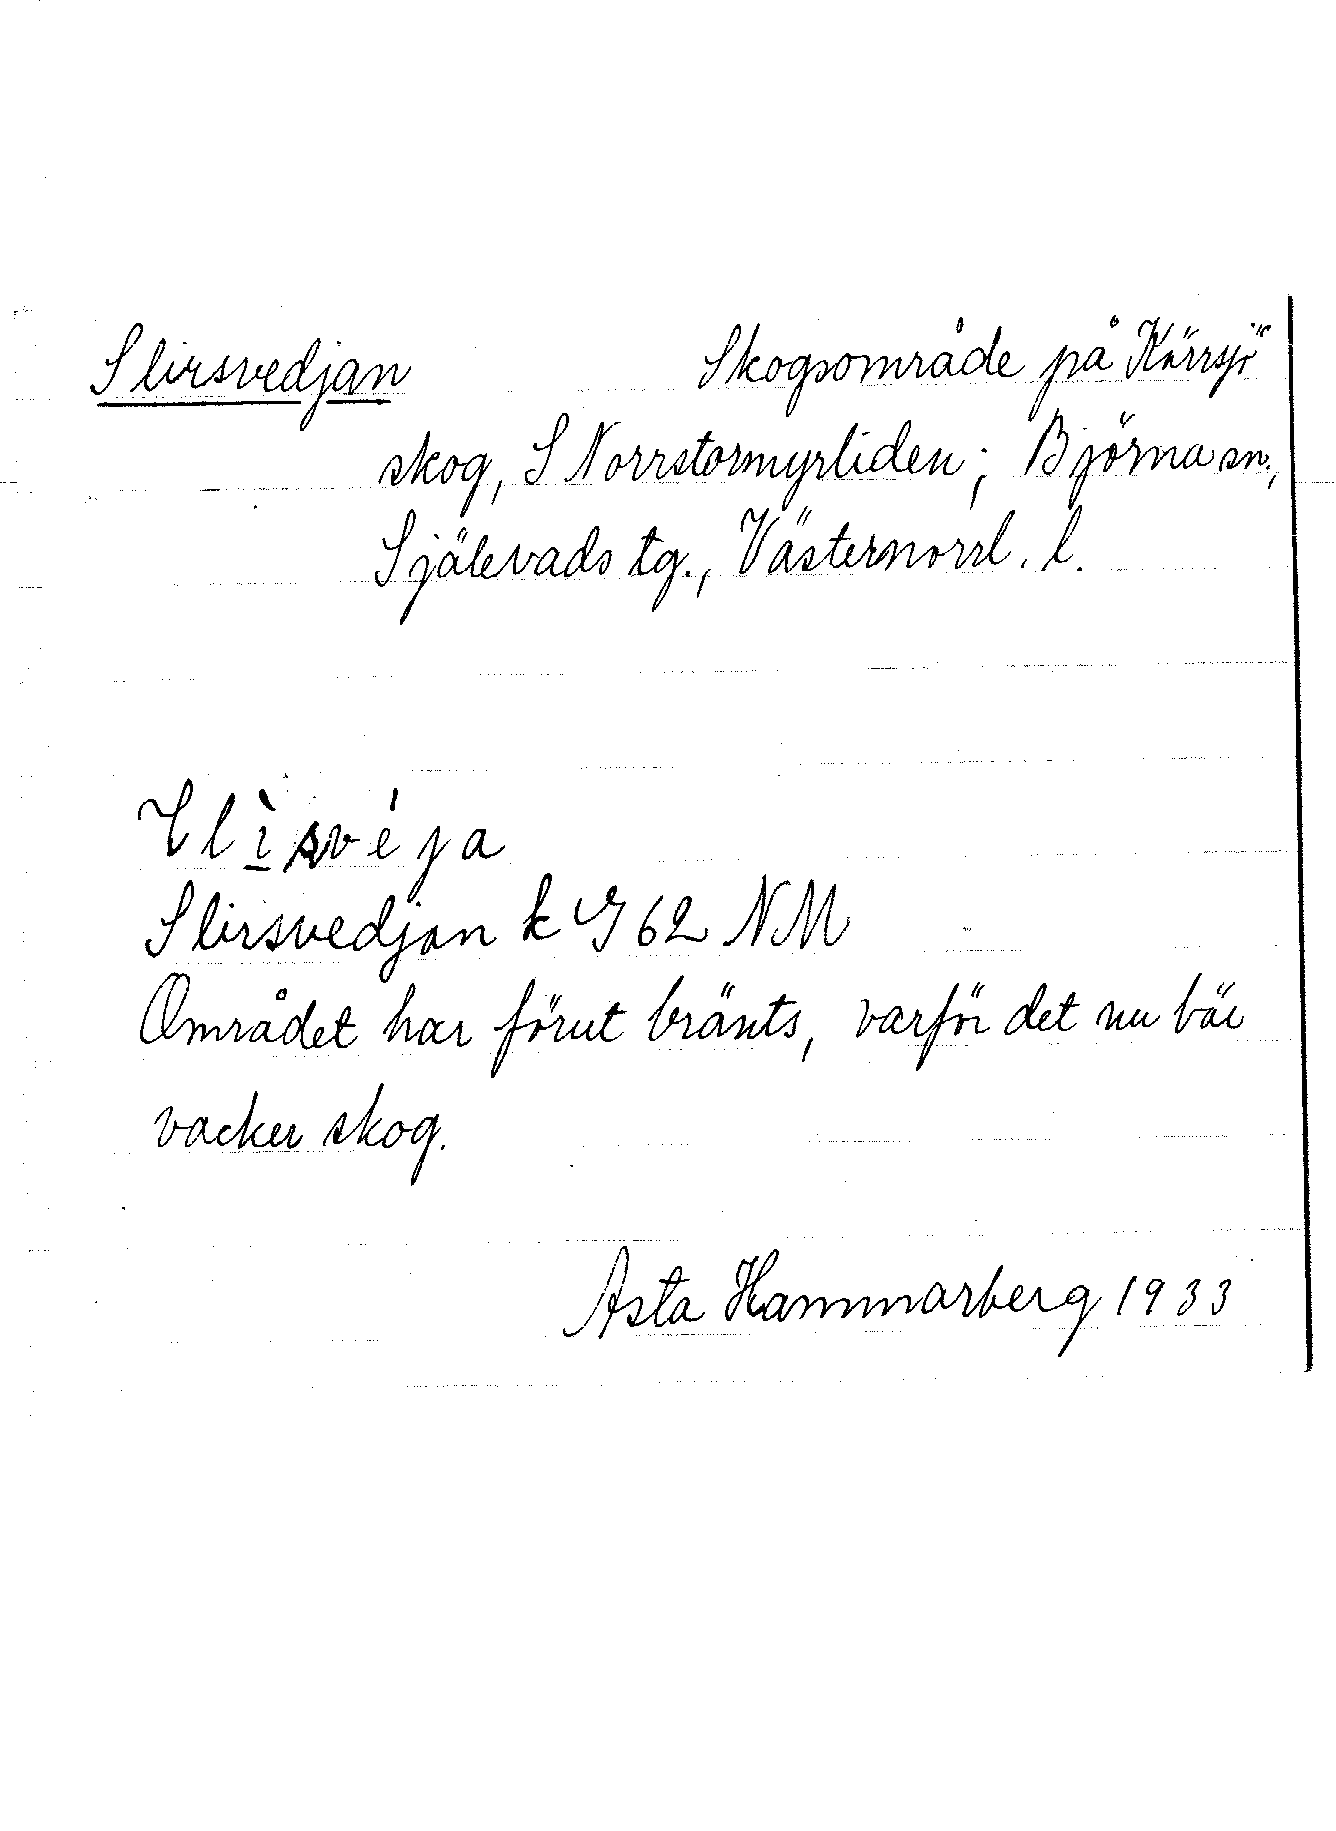 Slirsvedjan Skogsområde på Kärrsjö
skog, S Norrstormyrliden; Björna sn.,
Själevads tg., Västernorrl. l.
Slirsvedjan k 962 NM
Området har förut bränts, varför det nu bär
vacker skog.
Asta Hammarberg 1933